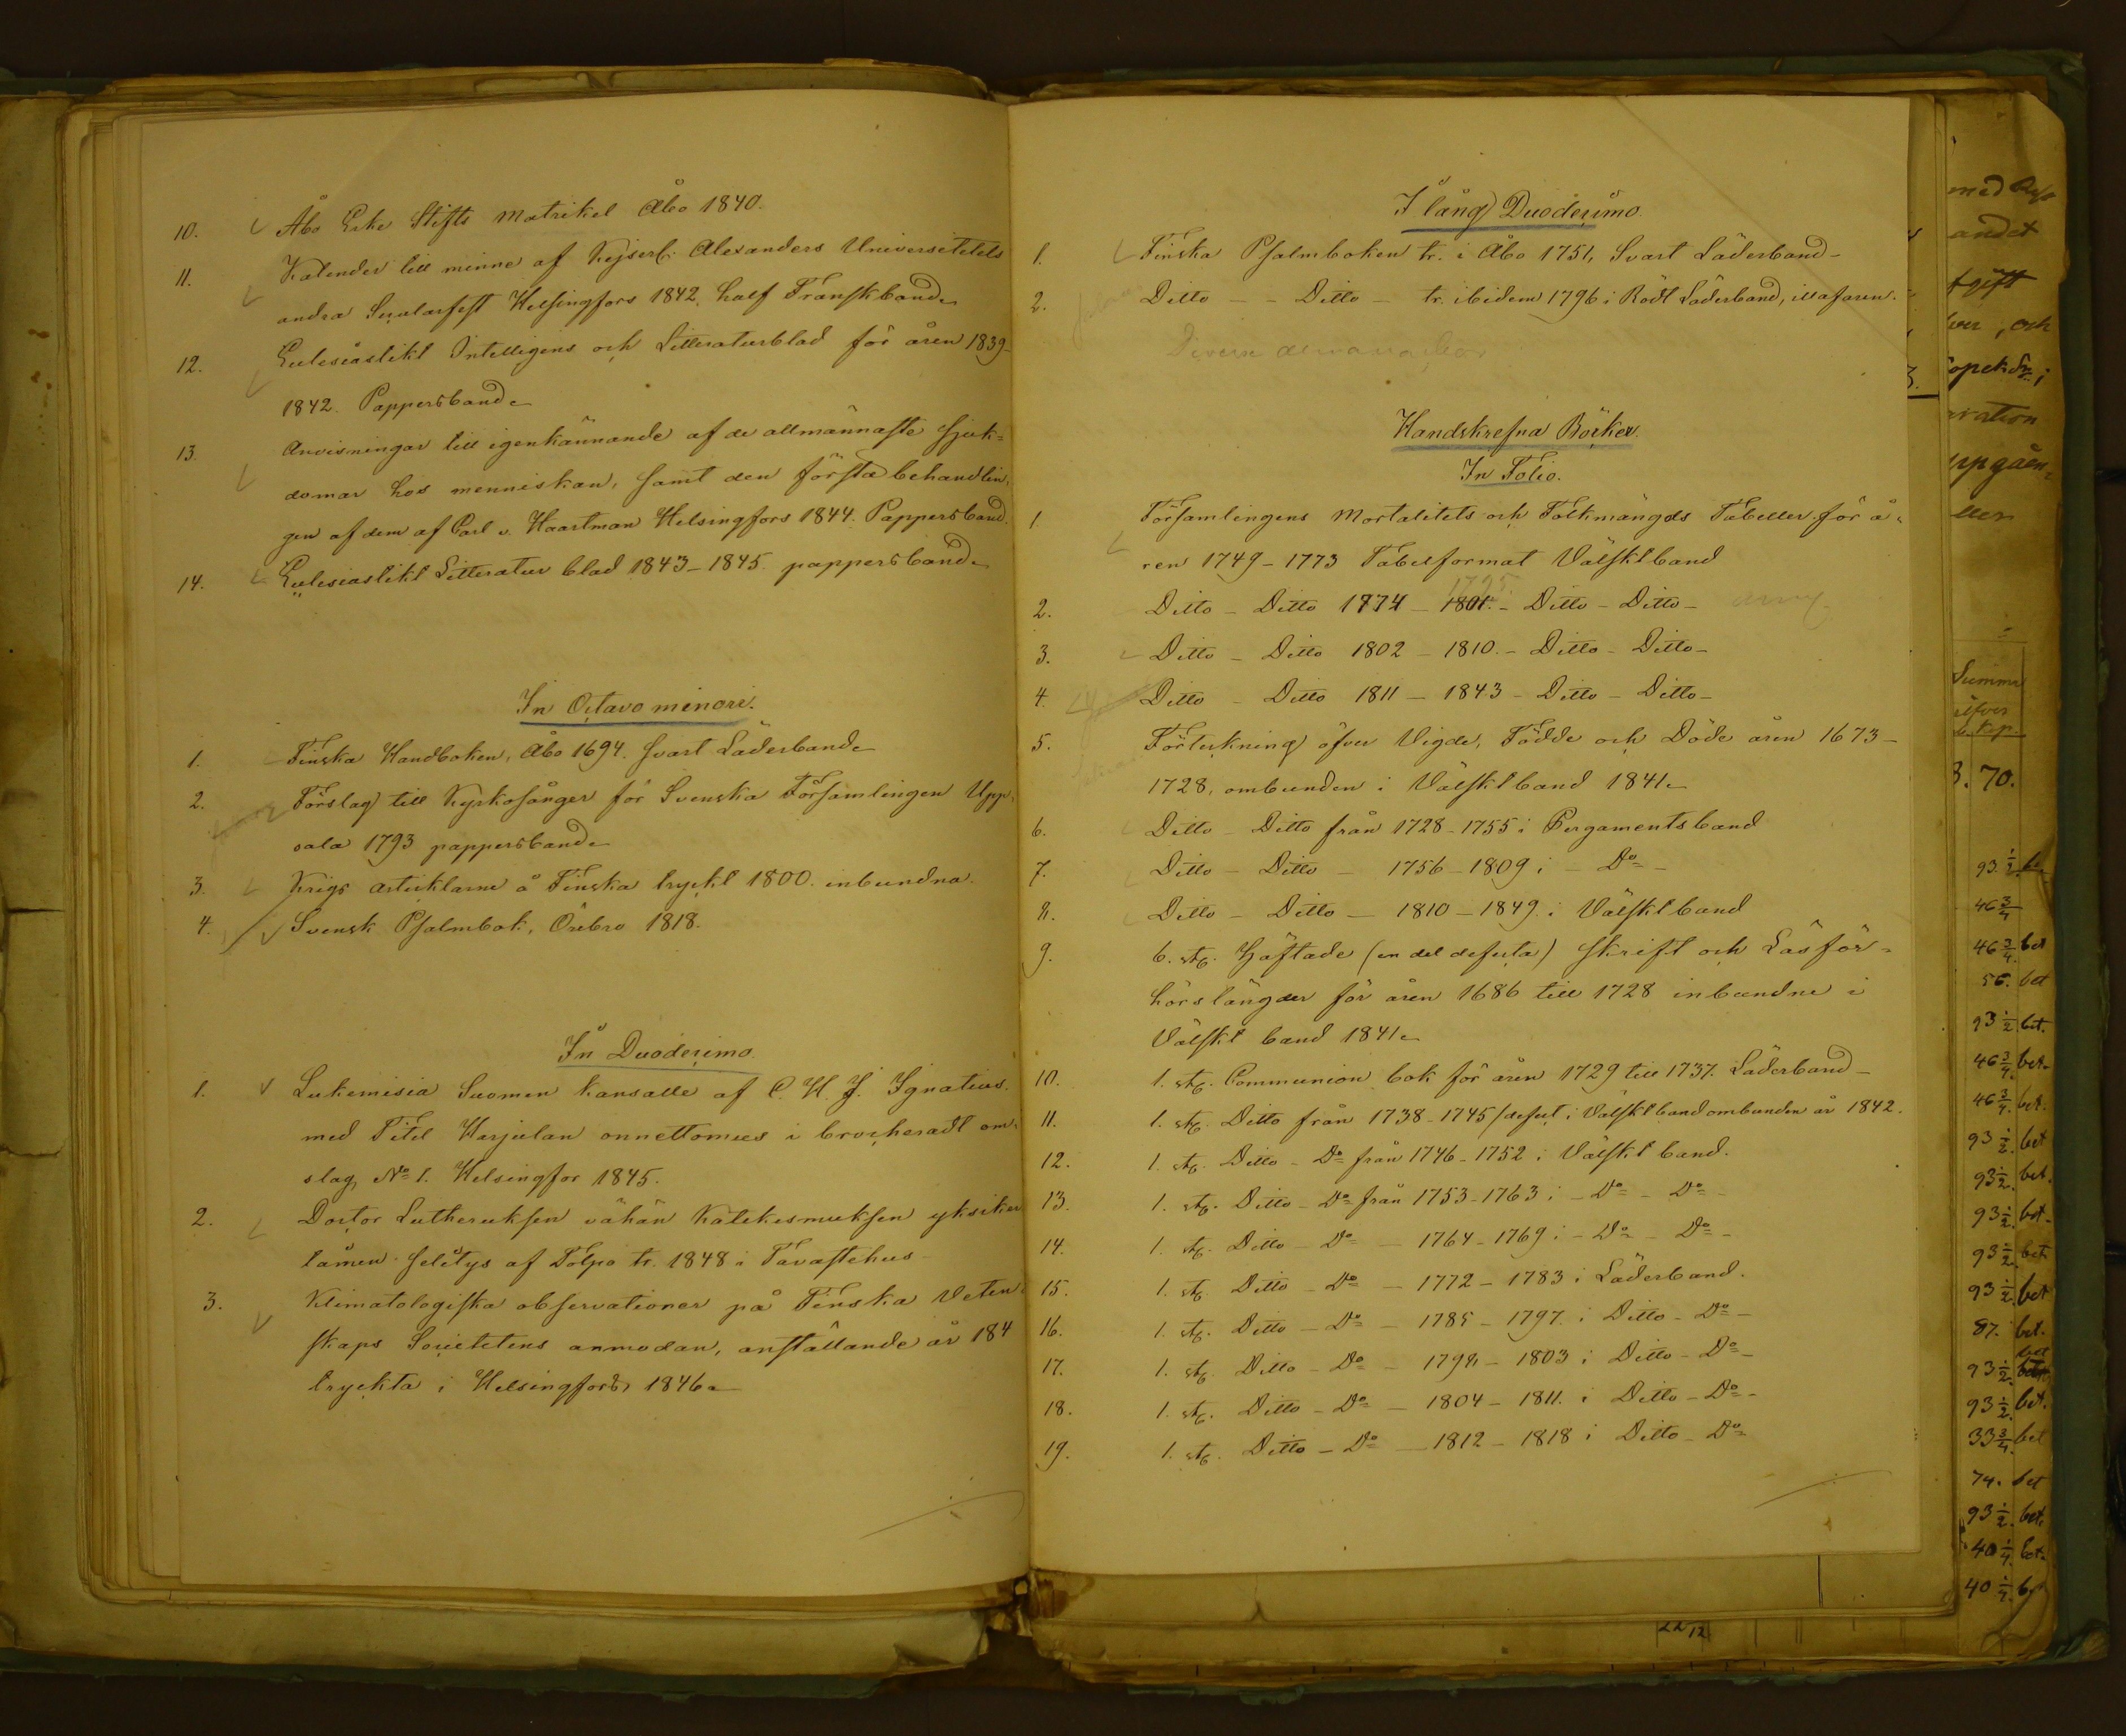 10. Åbo Erke Stifts Matrikel Åbo 1840.
11. Kalender till minne af Kejserl. Alexanders Universitetets
andra Secularfest Helsingfors 1842. half Franskband.
12. Ecclesiastikt Intelligens och Litteraturblad för åren 1839-
1842. Pappersband.
13. Anvisningar till igenkännande af de allmännaste sjuk=
domar hos menniskan, samt den första behandlin=
gen af dem af Carl v. Haartman Helsingfors 1844. Pappersband.
14. Ecclesiastikt Litteratur blad 1843-1845. pappersband.
In Octavo minori.
1. Finska Handboken, Åbo 1694. svart Läderband.
2. Förslag till Kyrkosånger för Svenska Församlingen Upp=
sala 1793 pappersband.
3. Krigs artiklarne å Finska tryckt 1800. inbundna.
4. Svensk Psalmbok, Örebro 1818.
In Duodecimo.
1. Lukemisia Suomen kansalle af C. H. J. Ignatius.
med Titel Harjulan onnettomus i brocheradt om=
slag, No 1. Helsingfor 1845.
2. Doctor Lutheruksen vähän Katekesmuksen yksiker
tämen selitys af Tolpo tr. 1848 i Tavastehus
3. Klimatologiska observationer på Finska Veten=
skaps Societetens anmodan, anställande år 184
tryckta i Helsingfors 1846.
I lång Duodecimo.
1. Finska Psalmboken tr. i Åbo 1751, Svart Läderband-
2. Ditto - - Ditto - tr. ibidem 1796 i Rödt Läderband, illafaren.
Diverse
Handskrefna Böcker.
In Folio.
1. Församlingens Mortalitets och Folkmängds Tabeller för å=
ren 1749-1773 Tabelformat Välsktband
1795
2. Ditto - Ditto 1774 - 1801. - Ditto - Ditto -
3. Ditto - Ditto 1802 - 1810. - Ditto - Ditto -
4. Ditto - Ditto 1811 - 1843 - Ditto - Ditto -
5. Förteckning öfver Vigde, Födde och Döde åren 1673-
1728, ombunden i Välsktband 1841.
6. Ditto - Ditto från 1728-1755 i Pergamentsband
7. Ditto - Ditto - 1756-1809 i - Do -
8. Ditto - Ditto - 1810-1849. i Välsktband
9. 6. st. Häftade (en del defecta) Skrift och Läsför=
hörslängder för åren 1686 till 1728 inbundne i
Välskt band 1841.
10. 1. st. Communion bok för åren 1729 till 1737. Läderband -
11. 1. st. Ditto från 1738-1745 /defect i Välsktband ombunden år 1842.
12. 1. st. Ditto - Do från 1746-1752 i Välskt band.
13. 1. st. Ditto - Do från 1753-1763 i - Do - Do -
14. 1. st. Ditto - Do - 1764-1769 i - Do - Do -
15. 1. st. Ditto - Do - 1772-1783 i Läderband.
16. 1. st. Ditto - Do - 1785-1797. i Ditto - Do -
17. 1. st. Ditto - Do - 1798-1803 i Ditto - Do -
18. 1. st. Ditto - Do - 1804-1811. i Ditto - Do -
19. 1. st. Ditto - Do - 1812-1818 i Ditto - Do
andet
och
Summa
silfver
70.
93 1/2
46 3/4
46 3/4 bet
56. bet
93 1/2. bet.
46 3/4. bet.
46 3/4. bet.
93 1/2. bet
93 1/2. bet.
93 1/2. bet.
93 1/2. bet
93 1/2. bet
87. bet.
93 1/2. bet
93 1/2. bet.
33 3/4. bet
74. bet
93 1/2. bet.
40 1/4. bet.
40 1/4.